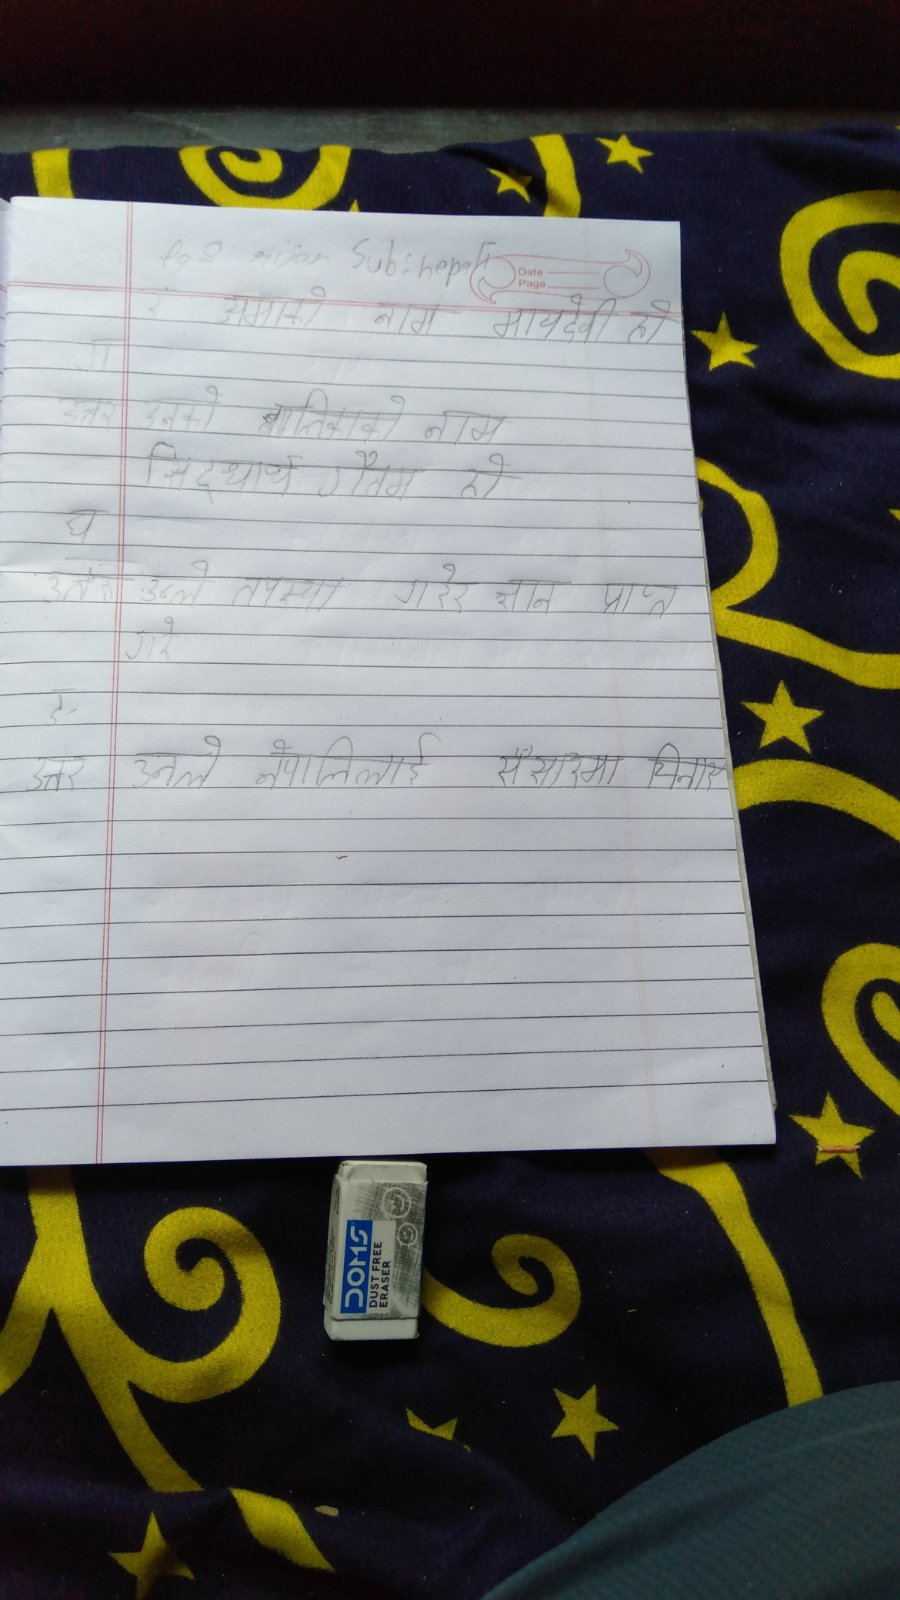 Date
Page
र अमाको नाम मायदेवी हो
ग
उत्तर उनको बालिकाको नाम
सिद्धार्थ गौतम हो
घ
उत्तर उनले तपस्या गरेर ज्ञान प्राप्त
गरे
ङ
उत्तर उनले नेपालिलाई संसारमा चिनाए
DOMS
DUST FREE
ERASER